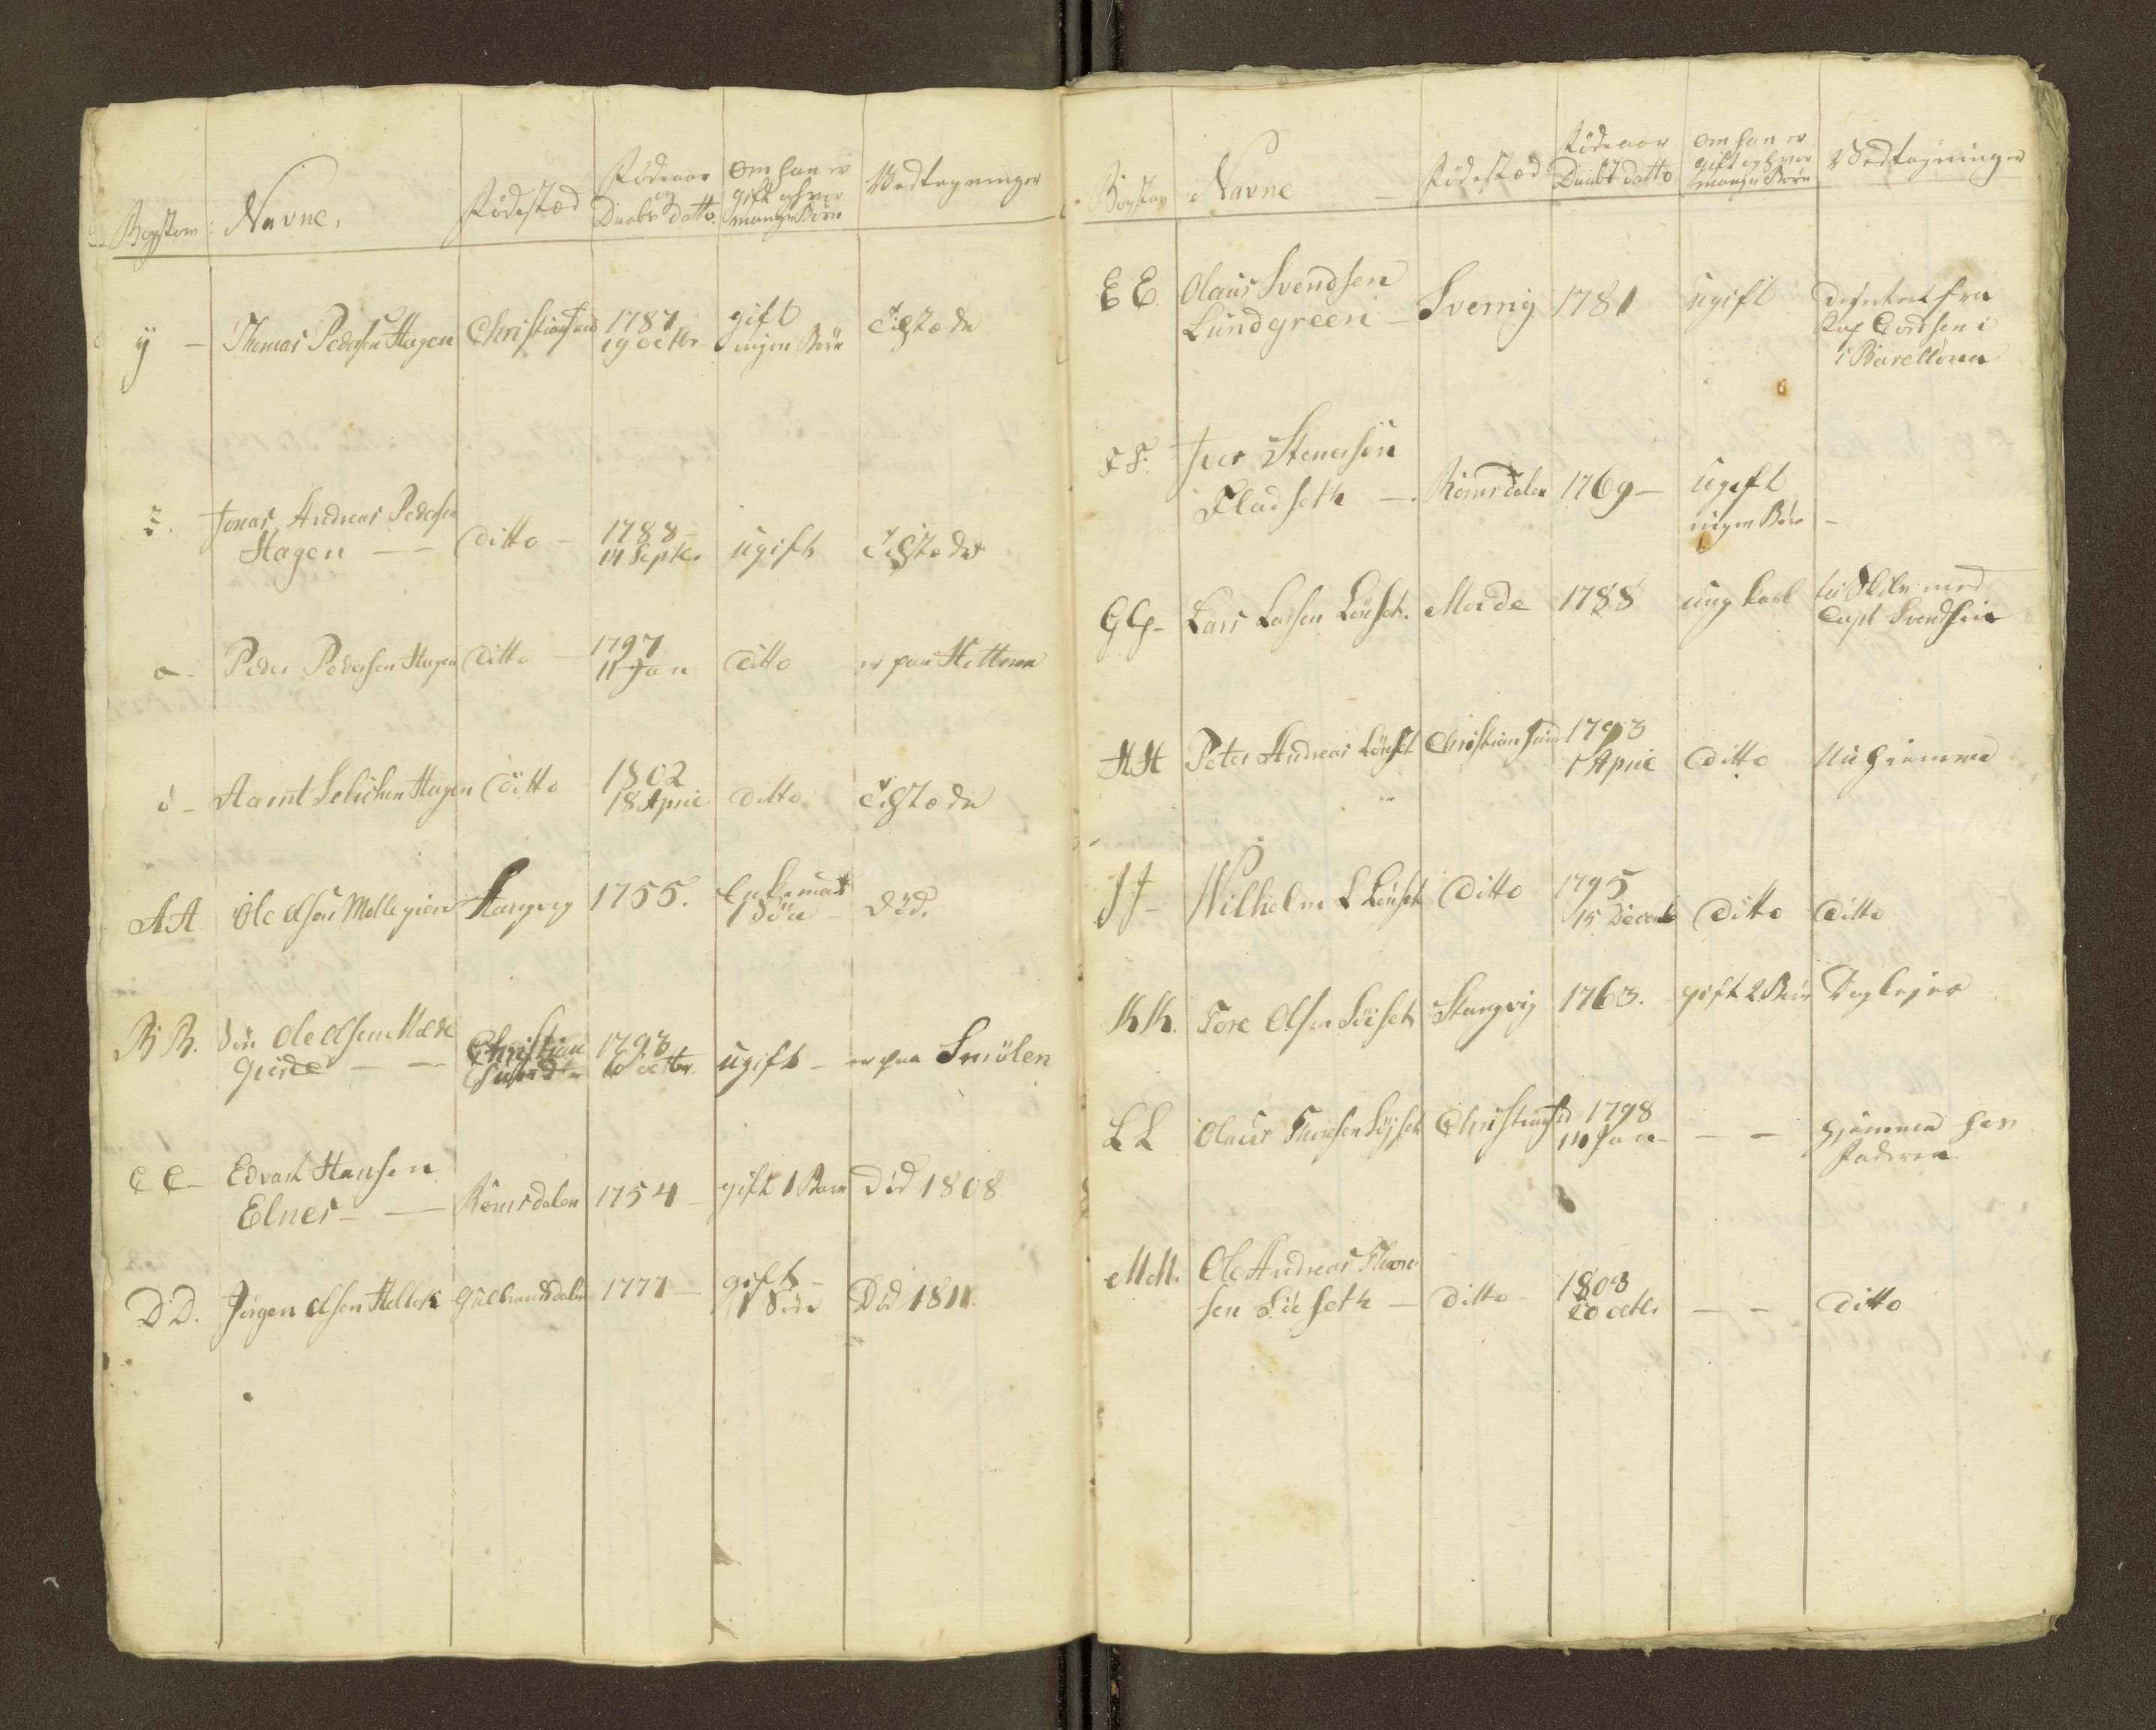 Bogstav Navne. Fødestæd Fødeaar og Daabs datto. Om han er gift og hvor mange Børn Vedtegninger
y - Thomas Pedersen Hagen Christiansund 1787 19 octbr gift ingen Børn Tilstæde
z. Jonas Andreas Pedersen
Hagen - - Ditto - 1788 14 Septbr. ugift Tilstæde
Peder Pedersen Hagen Ditto - 1797 11 Jan Ditto er paa Hitteren
ö - Hagen Ditto 1802 18 April Ditto Tilstæde
AA. Ole Olsen Stangvig 1755. Enkemand 1 Søn - Død.
BB. Søn Ole Olsen
- - Christian
sund 1793 octbr. ugift - er paa Smölen
CC - Edvart Hansen
Elnes - - Romsdalen 1754 - gift 1 Barn Död 1808
DD. Jörgen Olsen Gulbrandsdalen 1777 - gift - 1 Søn Död 1811.
Bogstav Navne - Fødestæd Fødeaar Daabs datto Om han er gift og hvor mange Børn Vedtegninger
EE. Olaus Svendsen
Lundgreen - Sverrig 1781 ugift Deserteret fra
i
i Barellona
FF. Iver Stenersen
Fladseth - Romsdalen 1769 - ugift
ingen Börn -
GG - Lars Larsen Molde 1788 ung karl med
Capt Svendsen
HH Peter Andreas Christiansund 1793 1 April Ditto Nu hiemme
JJ - Wilhelm L Ditto 1795 15 Decemb Ditto Ditto
KK. Tore Olsen Stangvig 1763. gift 2 Börn
LL Olaus Thoresen Christiansund 1798 14 Jan - - - hjemme hos
Faderen
MM. Ole Andreas Thore
sen - Ditto - 1803 20 octbr - - Ditto